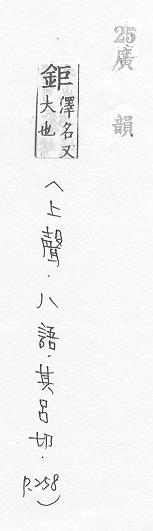 25廣韻
鉅澤名又大也
(上聲.八語.其呂切.P.258)